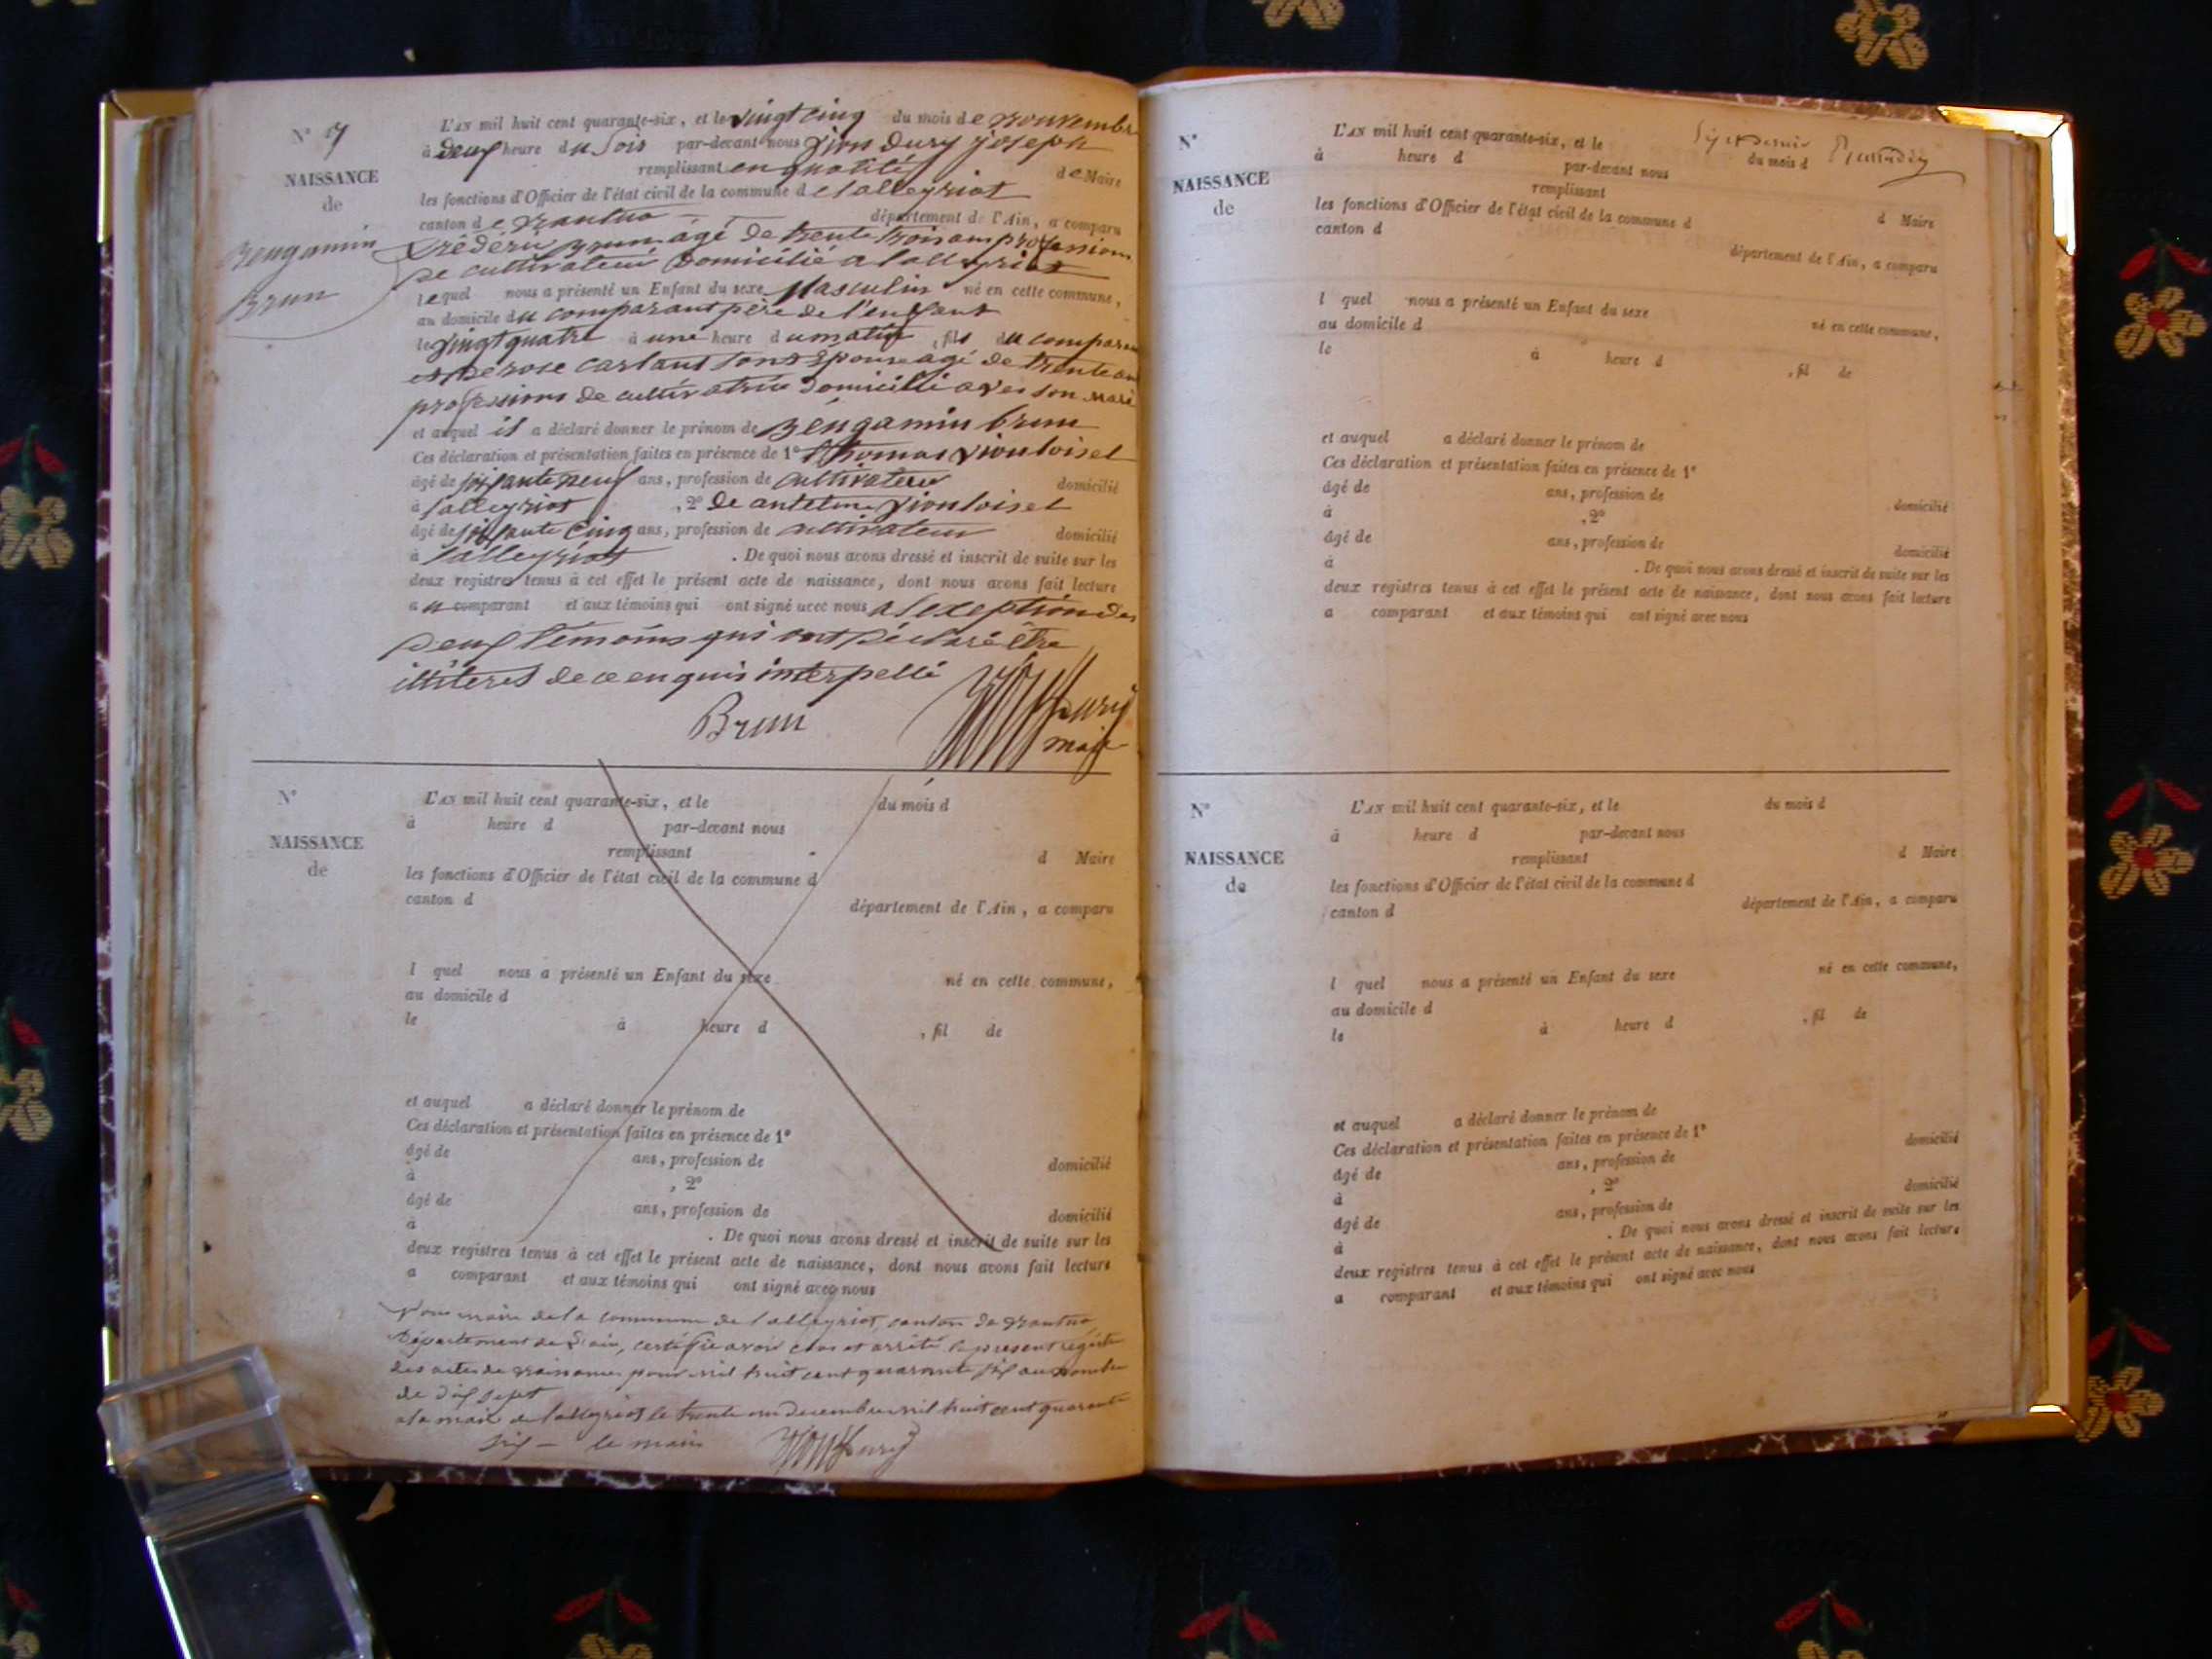 N° 17
NAISSANCE
de
Bengamin
Brun
L'AN mil huit cent quarante-six, et le vingt cinq du mois de Nouvembre
à deux heure du Soir par-devant nous Jion dury joseph
remplissant en qualité de Maire
les fonctions d'Officier de l'état civil de la commune de lalleyriat
canton de Nantua département de l'Ain, a comparu
frédéric Brun agé de trente trois ans professions
de cultivateur domicilié a lalleyriat
lequel nous a présenté un Enfant du sexe Masculin né en cette commune,
au domicile du comparant père de l'enfant
le vingt quatre à une heure du matin, fils du comparant
et de rose carlant sont Epouse agé de trente ans
professions de cultivatrice domicilié avec son mari
et auquel il a déclaré donner le prénom de Béngamin brun
Ces déclaration et présentation faites en présence de 1° thomas jionloisel
âgé de soixante neuf ans, profession de cultivateur domicilié
à lalleyriat , 2° de antelme jionloisel
âgé de soixante cinq ans, profession de cultivateur domicilié
à lalleyriat . De quoi nous avons dressé et inscrit de suite sur les
deux registres tenus à cet effet le présent acte de naissance, dont nous avons fait lecture
au comparant et aux témoins qui ont signé avec nous a lexeption des
deux témoins qui ont déclaré être
illiterés de ce enquis interpellé
Brun
Dury
maire
N°
NAISSANCE
de
L'AN mil huit cent quarante-six, et le du mois d
à heure d par-devant nous
remplissant d Maire
les fonctions d'Officier de l'état civil de la commune d
canton d département de l'Ain, a comparu
l quel nous a présenté un Enfant du sexe né en cette commune,
au domicile d
le à heure d , fil de
et auquel a déclaré donner le prénom de
Ces déclaration et présentation faites en présence de 1°
âgé de ans, profession de domicilié
à , 2°
âgé de ans, profession de domicilié
à . De quoi nous avons dressé et inscrit de suite sur les
deux registres tenus à cet effet le présent acte de naissance, dont nous avons fait lecture
a comparant et aux témoins qui ont signé avec nous
Nous maire de la commune de lalleyriat, canton de Nantua
Département de l'ain, certifie avoir clos et arrêté le present régistre
des actes de naissances pour mil huit cent quarante six au nombre
de dix sept
a la mairie de lalleyriat le trente un decembre mil huit cent quarante
six — le maire
N°
NAISSANCE
de
L'AN mil huit cent quarante-six, et le du mois d
à heure d par-devant nous
remplissant d Maire
les fonctions d'Officier de l'état civil de la commune d
canton d département de l'Ain, a comparu
l quel nous a présenté un Enfant du sexe né en cette commune,
au domicile d
le à heure d , fil de
et auquel a déclaré donner le prénom de
Ces déclaration et présentation faites en présence de 1°
âgé de ans, profession de domicilié
à , 2°
âgé de ans, profession de domicilié
à . De quoi nous avons dressé et inscrit de suite sur les
deux registres tenus à cet effet le présent acte de naissance, dont nous avons fait lecture
a comparant et aux témoins qui ont signé avec nous
N°
NAISSANCE
de
L'AN mil huit cent quarante-six, et le du mois d
à heure d par-devant nous
remplissant d Maire
les fonctions d'Officier de l'état civil de la commune d
canton d département de l'Ain, a comparu
l quel nous a présenté un Enfant du sexe né en cette commune,
au domicile d
le à heure d , fil de
et auquel a déclaré donner le prénom de
Ces déclaration et présentation faites en présence de 1°
âgé de ans, profession de domicilié
à , 2°
âgé de ans, profession de domicilié
à . De quoi nous avons dressé et inscrit de suite sur les
deux registres tenus à cet effet le présent acte de naissance, dont nous avons fait lecture
a comparant et aux témoins qui ont signé avec nous